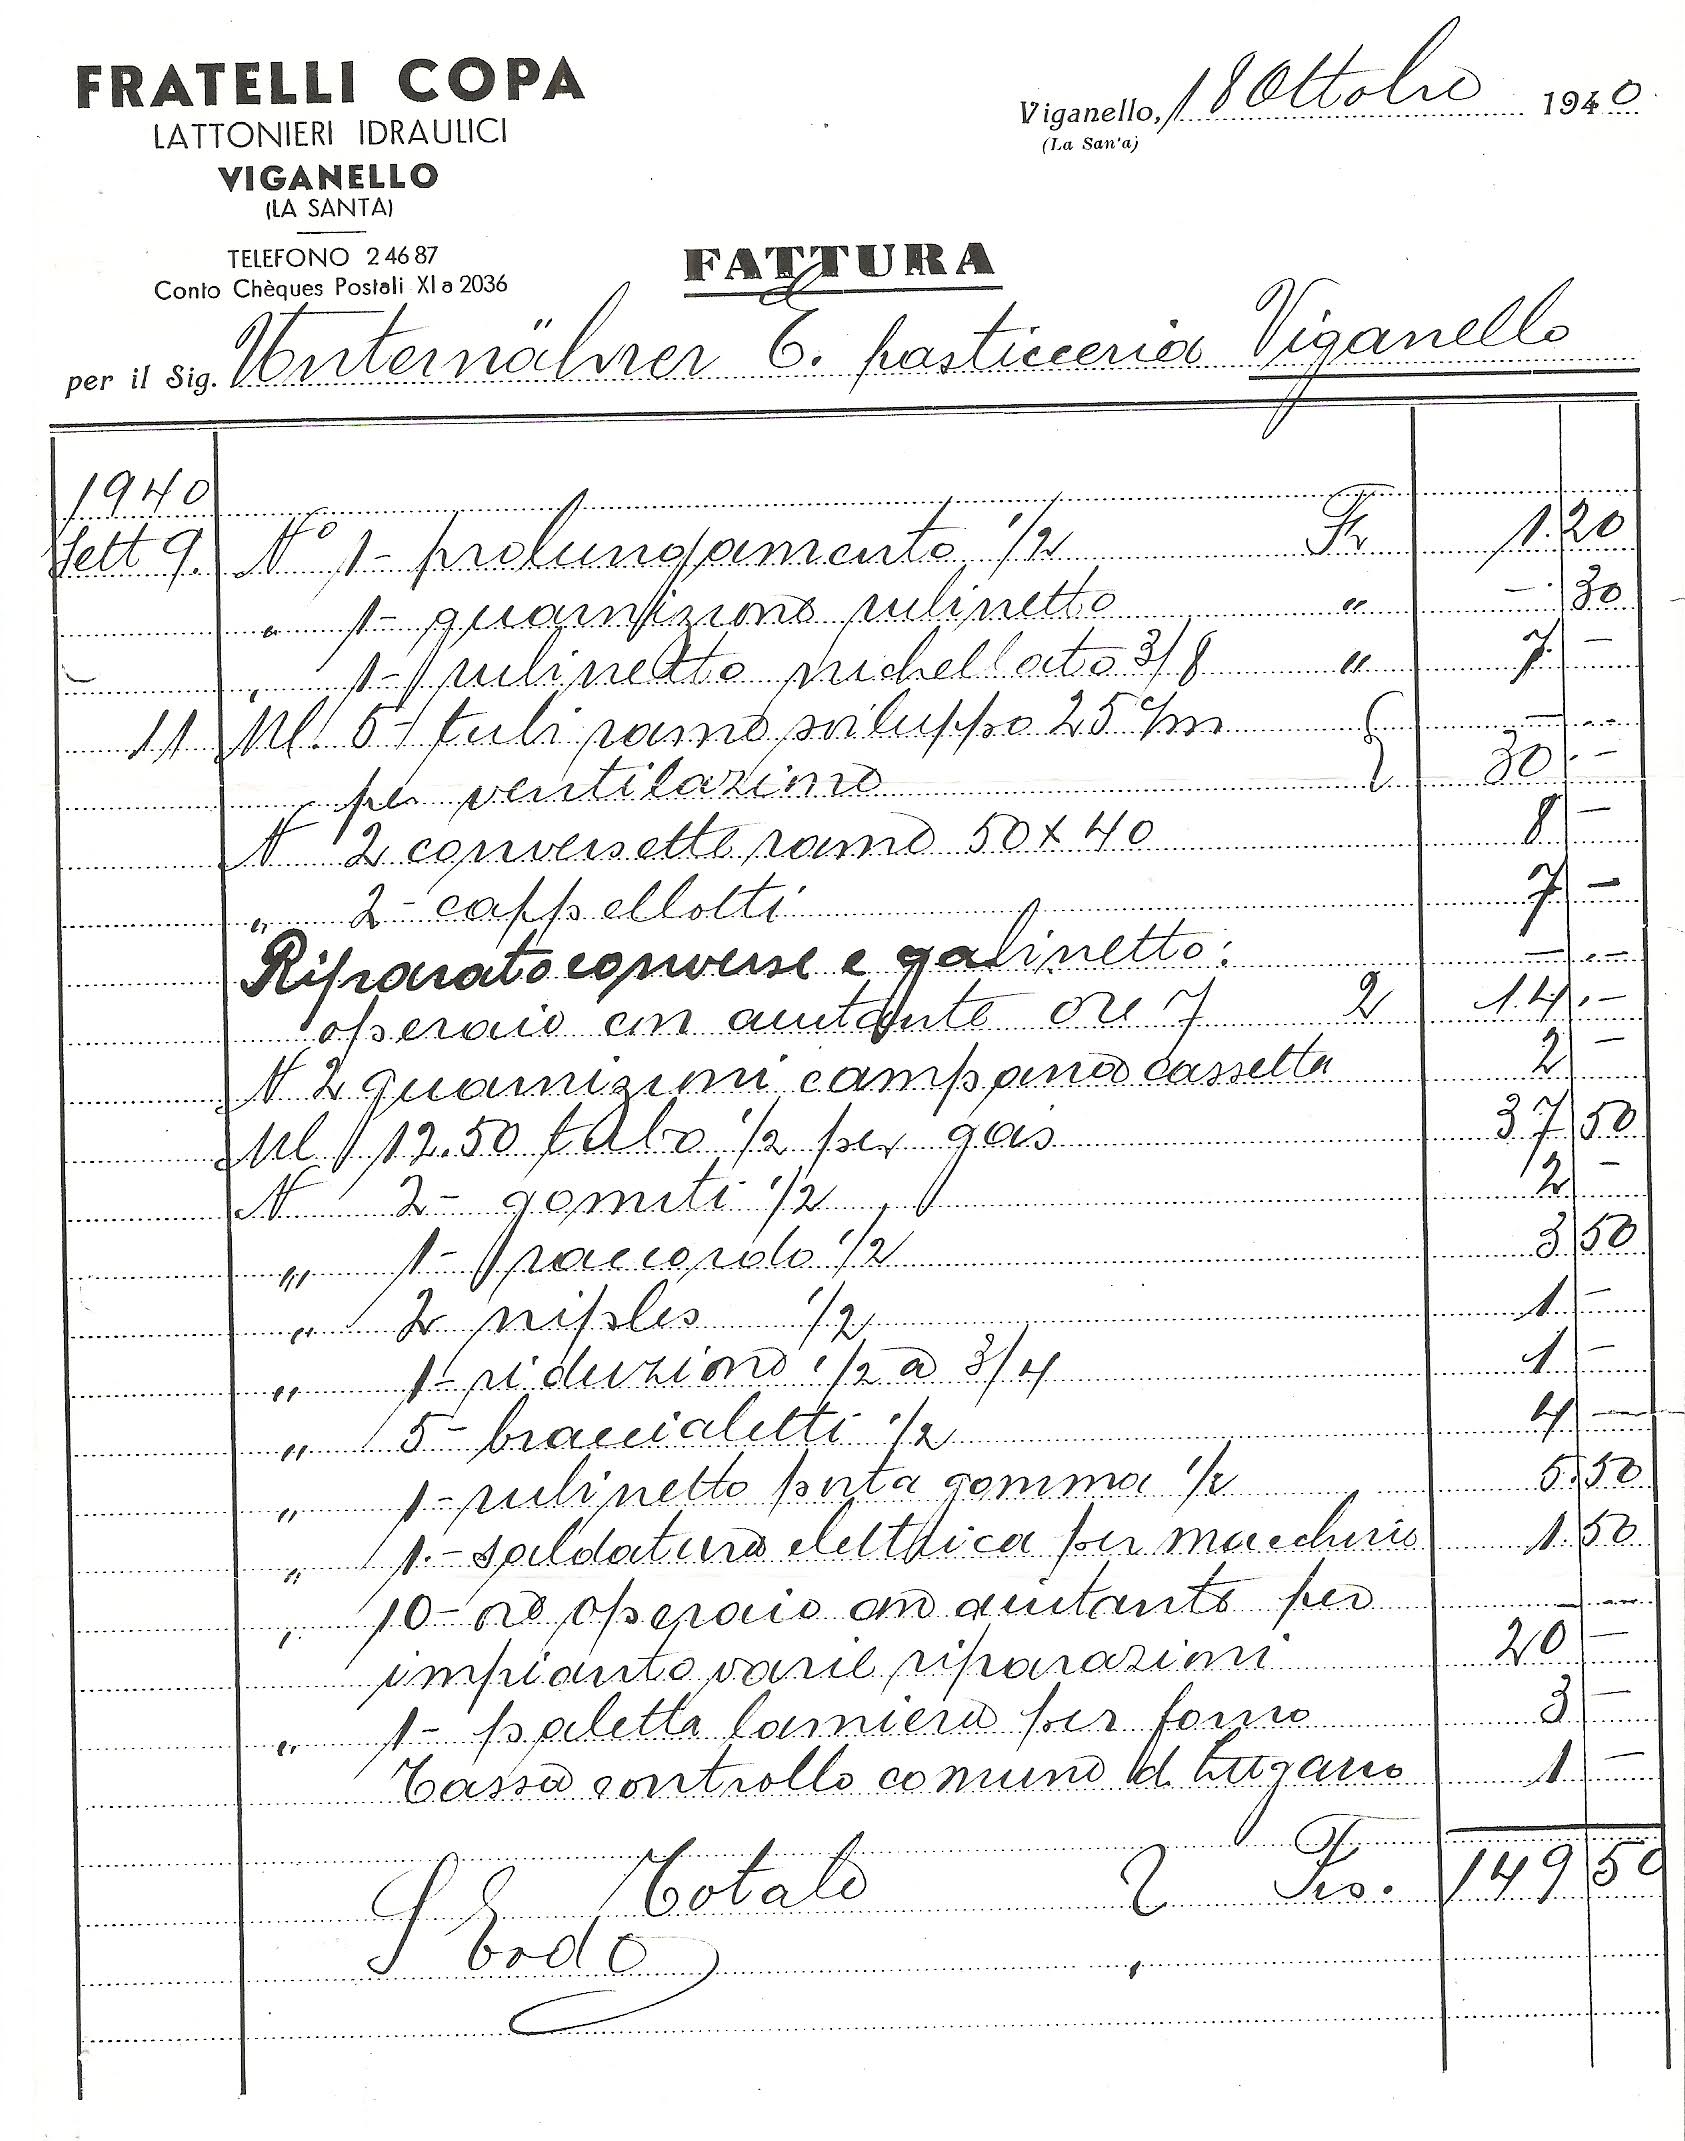 FRATELLI COPA
LATTONIERI IDRAULICI
VIGANELLO
(LA SANTA)
TELEFONO 2 46 87
Conto Chèques Postali XI a 2036
Viganello, 18 Ottobre 1940
(La San'a)
FATTURA
per il Sig. Unternährer E. pasticceria Viganello
1940
Sett 9. No 1- prolungamento 1/2 Fr 1.20
" 1- guarnizione rubinetto " -.30
" 1- rubinetto nichellato 3/8 " 7.-
11 Ml. 5- tubi rame sviluppo 25 c/m - --
per ventilazione 30.-
N 2 conversette rame 50 x 40 8 -
" 2- cappellotti 7 -
Riparato converse e gabinetto: - --
operaio con aiutante ore 7 14.-
N 2 guarnizioni campana cassetta 2 -
Ml 12.50 tubo 1/2 per gas 37 50
N 2- gomiti 1/2 2 -
" 1- raccordo 1/2 3 50
" 2 niples 1/2 1 -
" 1- riduzione 1/2 a 3/4 1 -
" 5- braccialetti 1/2 4 -
" 1- rubinetto porta gomma 1/2 5.50
" 1.- saldatura elettrica per 1.50
" 10- ore operaio con aiutante per - --
impianto varie riparazioni 20 -
" 1- paletta lamiera per forno 3 -
Tassa controllo comune d Lugano 1 -
Totale Frs. 149 50